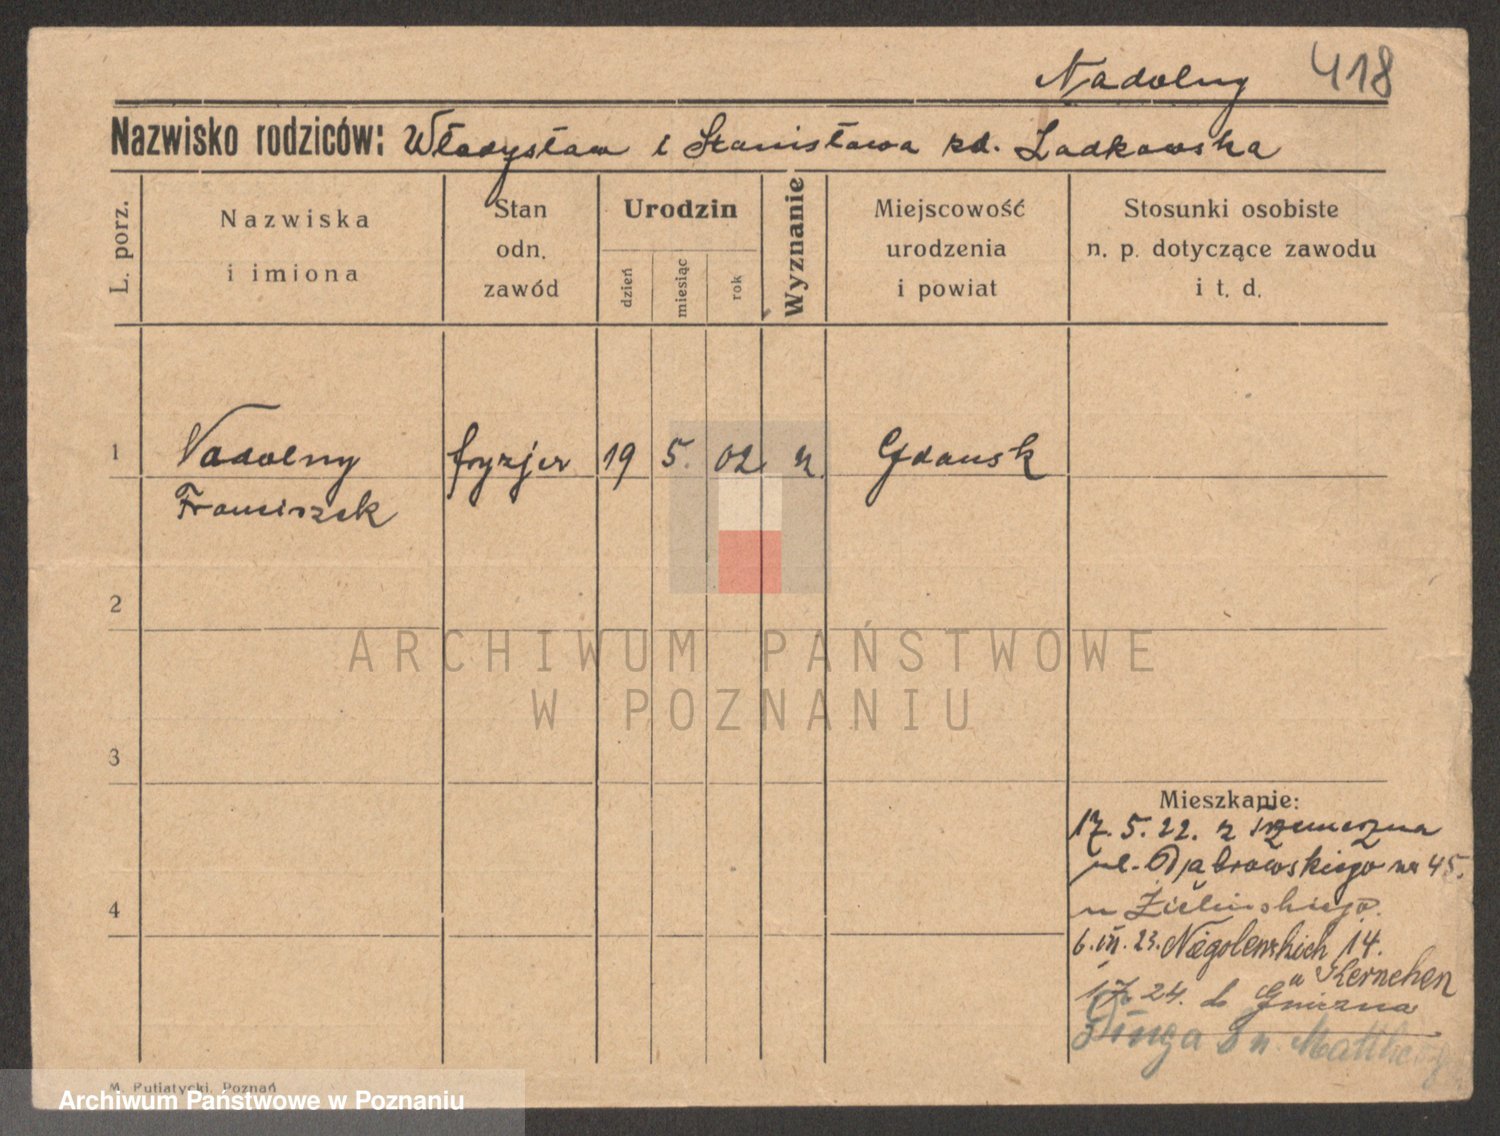 Nadolny 418
Nazwisko rodziców: Władysław i Stanisława zd. Zadkowska
L. porz.
Nazwiska
i imiona
Stan
odn.
zawód
Urodzin
dzień
miesiąc
rok
Wyznanie
Miejscowość
urodzenia
i powiat
Stosunki osobiste
n. p. dotyczące zawodu
i t. d.
1 Nadolny fryzjer 19 5. 02 Gdansk
Franciszek
2
ARCHIWUM PAŃSTWOWE
W POZNANIU
3
Mieszkanie:
17. 5. 22. z Trzemeszna
ul. Dąbrowskiego nr 45.
u Zielinskiego.
4
6. III. 23. Niegolewskich 14.
u Kernchen
24. do Gniezna
Długa
M. Putiatycki, Poznań
Archiwum Państwowe w Poznaniu